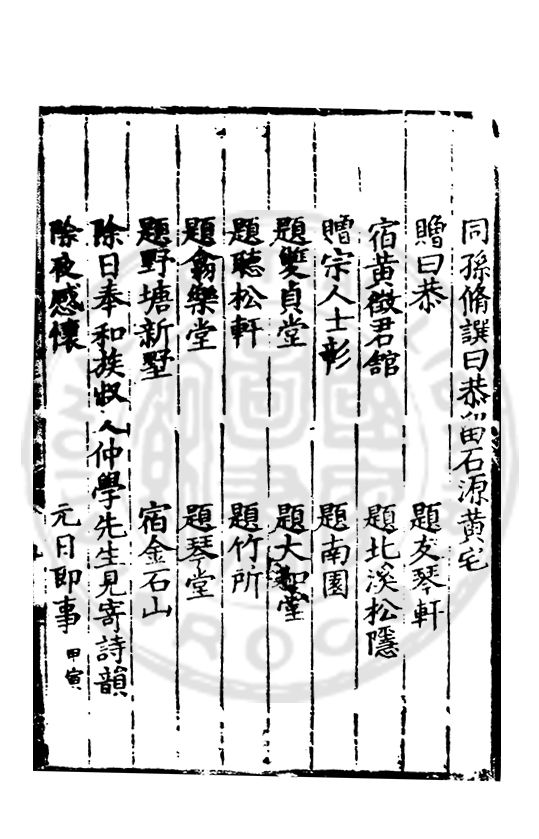 同孫脩譔曰恭留石源黃宅
贈曰恭　題友琴軒
宿黃徵君館　題北溪松隱
贈宗人士彰　題南園
題雙貞堂　題大知堂
題聽松軒　題竹所
題翕樂堂　題琴堂
題野塘新墅　宿金石山
除日奉和族叔人仲學先生見寄詩韻
除夜感懷　元日即事 甲寅